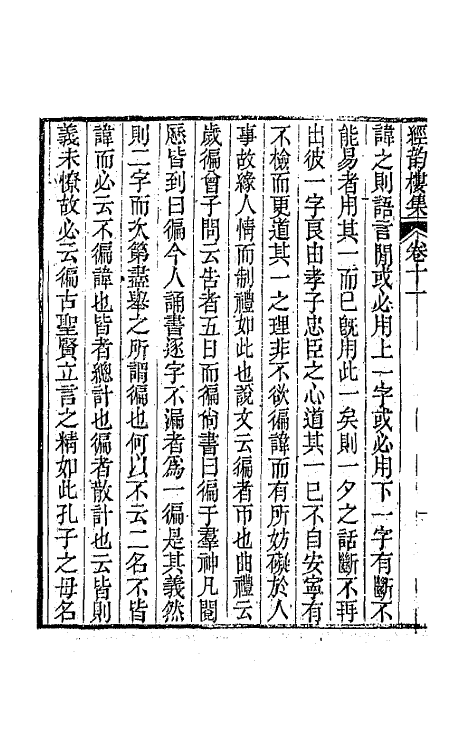 經韵樓集 卷十一
諱之則語言閒或必用上一字或必用下一字有斷不
能易者用其一而已旣用此一矣則一夕之話斷不再
出彼一字良由孝子忠臣之心道其一已不自安寧有
不檢而更道其一之理非不欲徧諱而有所妨礙於人
事故緣人情而制禮如此也說文云徧者帀也曲禮云
歲徧曾子問云告者五日而徧尙書曰徧于羣神凡閱
歷皆到曰徧今人誦書逐字不漏者爲一徧是其義然
則二字而次第盡舉之所謂徧也何以不云二名不皆
諱而必云不徧諱也皆者總計也徧者散計也云皆則
義未憭故必云徧古聖賢立言之精如此孔子之母名